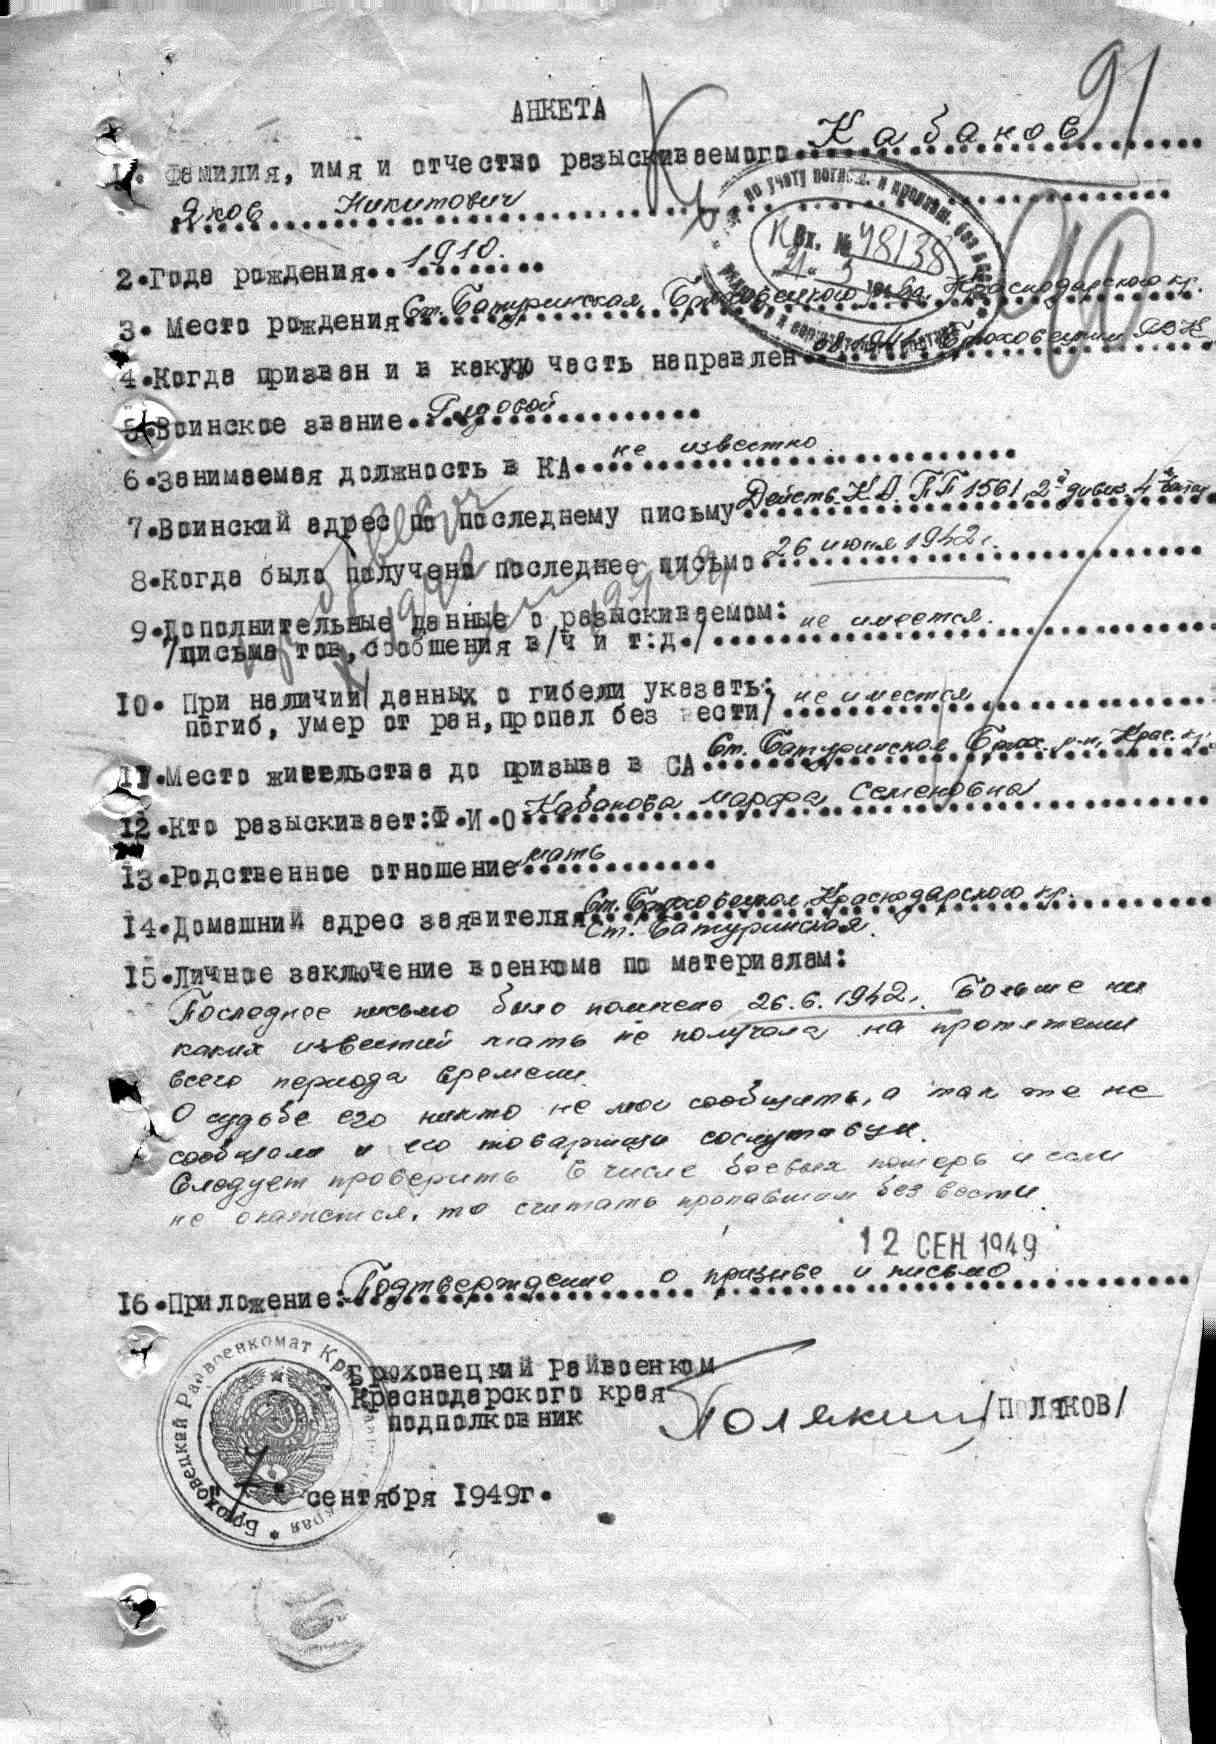 91
АНКЕТА
1. Фамилия, имя и отчество разыскиваемого Кабаков
Яков Никитович
по учету погибш. и пропав. без вести
Вх. № 48138
2. Года рождения 1910.
3. Место рождения ст. Батуринская, Брюховецкого Краснодарского кр.
4. Когда призван и в какую часть направлен Брюховецким РВК
5. Воинское звание Рядовой
6. Занимаемая должность в КА не известно
7. Воинский адрес по последнему письму Действ. К.А. ПП 1561, 2й дивиз. 4
8. Когда было получено последнее письмо 26 июня 1942 г.
9. Дополнительные данные о разыскиваемом: не имеется.
/письма тов, сообшения в/ч и т:д./
10. При наличии данных о гибели указать: не имеется
погиб, умер от ран, пропал без вести/
11. Место жительства до призыва в СА ст. Батуринская Брюх. р-н, Крас. кр.
12. Кто разыскивает: Ф.И.О Кабакова Марфа Семеновна
13. Родственное отношение мать
14. Домашний адрес заявителя Ст. Брюховецкая, Краснодарского кр.
ст. Батуринская.
15. Личное заключение военкома по материалам:
Последнее письмо было 26.6.1942г. Больше ни
каких известий мать не получала на протяжении
всего периода времени.
О судьбе его никто не мог сообщить, а так же не
сообщали и его товарищи сослуживцы.
Следует проверить в числе боевых потерь и если
не окажется, то считать пропавшим без вести.
12 СЕН 1949
16. Приложение: Подтверждение о призыве и письмо
Брюховецкий Райвоенком
Краснодарского края
подполковник /Поляков/
Брюховецкий Райвоенкомат края
7 сентября 1949г.